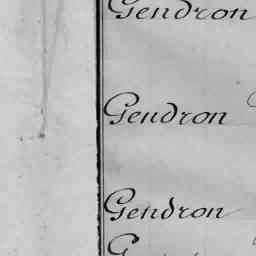 Gendron
Gendron
Gendron